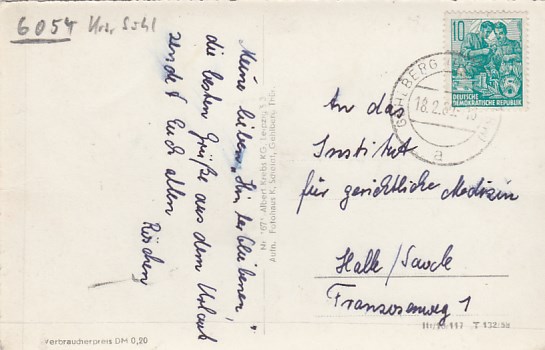 6054 Krs. Suhl
Meine lieben "Hinterbliebenen"
die besten Grüße aus dem Urlaub
sendet Euch allen
Röschen
Nr. 1671 Albert Krebs KG, Leipzig
Aufn. Fotohaus K. Scheidt, Gehlberg, Thür.
10
DEUTSCHE
DEMOKRATISCHE REPUBLIK
GEHLBERG
18.2.
a
An das
Institut
für gerichtliche Medizin
Halle/Saale
Franzosenweg 1
III/18/117 T 132/59
Verbraucherpreis DM 0,20